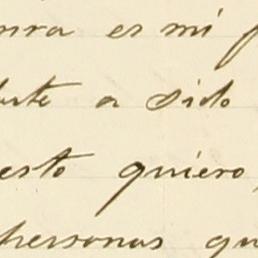 nra es mi p
ste a sido
esto quiero,
personas qu